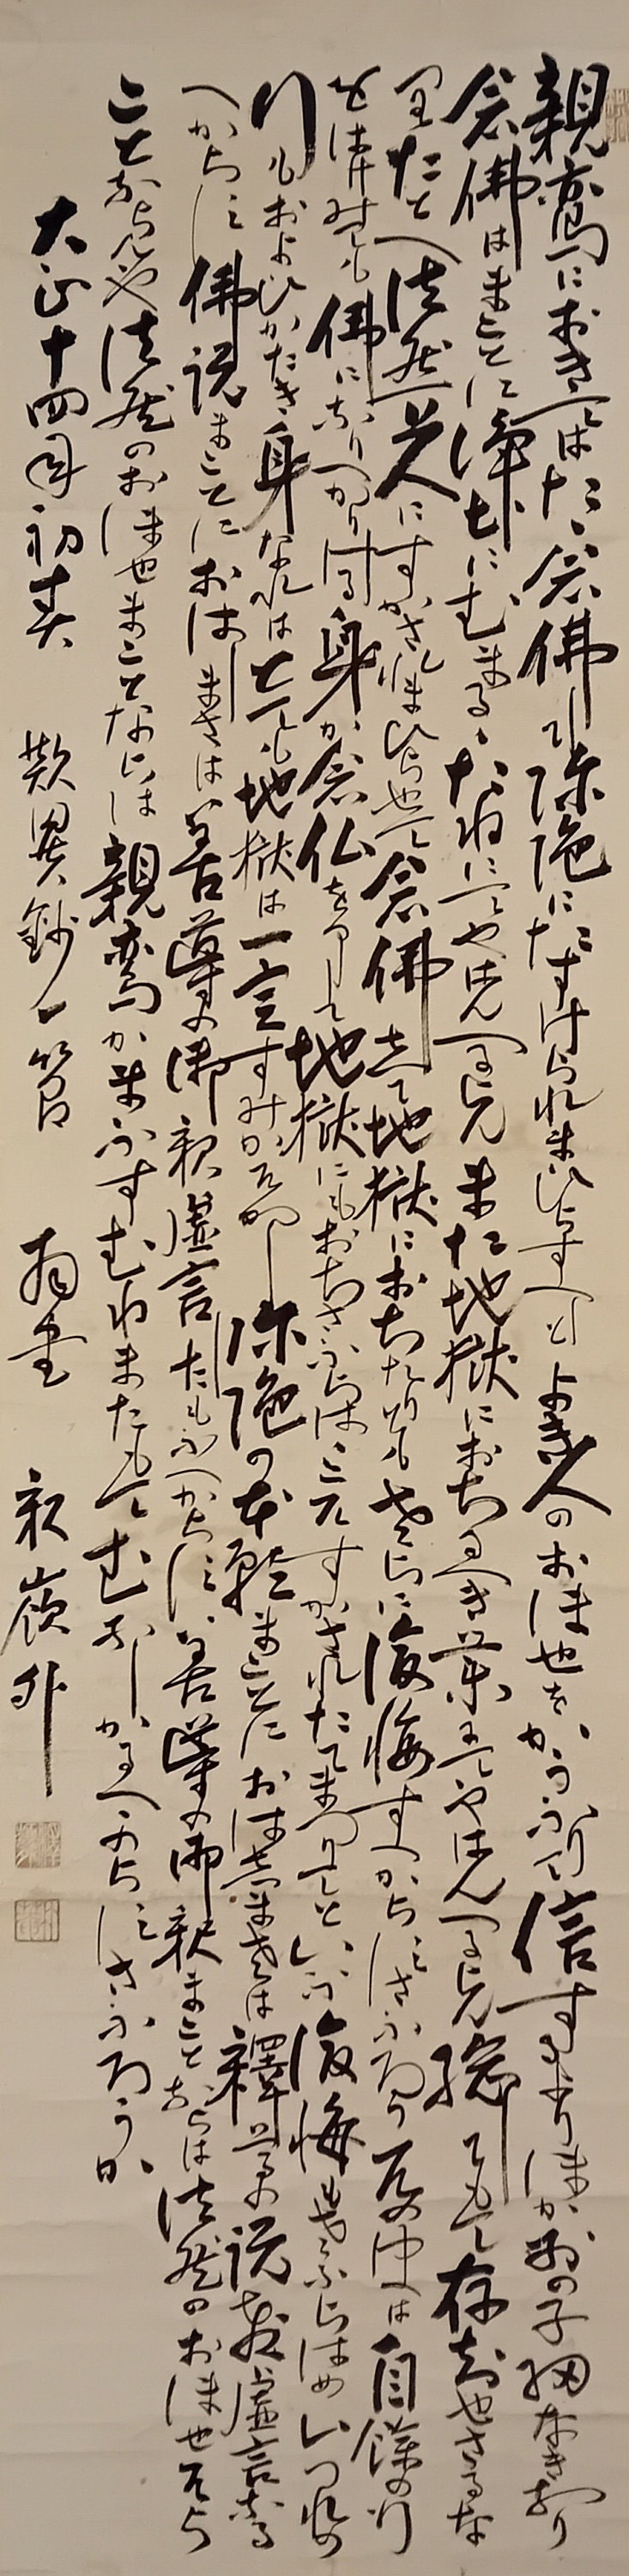 親鸞におきてはたゝ念佛して弥陀にたすけられまひらすへしとよき人のおほせをかうふりて信するよりほかに別の子細なきなり
念佛はまことに浄土にむまるゝたねにてやはんへるらんまた地獄におつへき業にてやはんへるらん総してもて存知せさるな
りたとへ法然上人にすかされまひらせて念佛して地獄におちたりともさらに後悔すへからすさふらうそのゆへは自餘の行
をはけみても佛になりへかりける身か念仏をまうして地獄にもおちさふらはゝこそすかされたてまつりてといふ後悔もさふらはめいつれの
行もおよひかたき身なれはとても地獄は一定すみかそかし弥陀の本願まことにおはしまさは釋尊の説教虚言なる
へからす佛説まことにおはしまさは善導の御釈虚言したまふへからす善導の御釈まことならは法然のおほせそら
ことならんや法然のおほせまことならは親鸞かまうすむねまたもてむなしかるへからすさふらうか
大正十四年初春 歎異鈔一節 釈嶺外